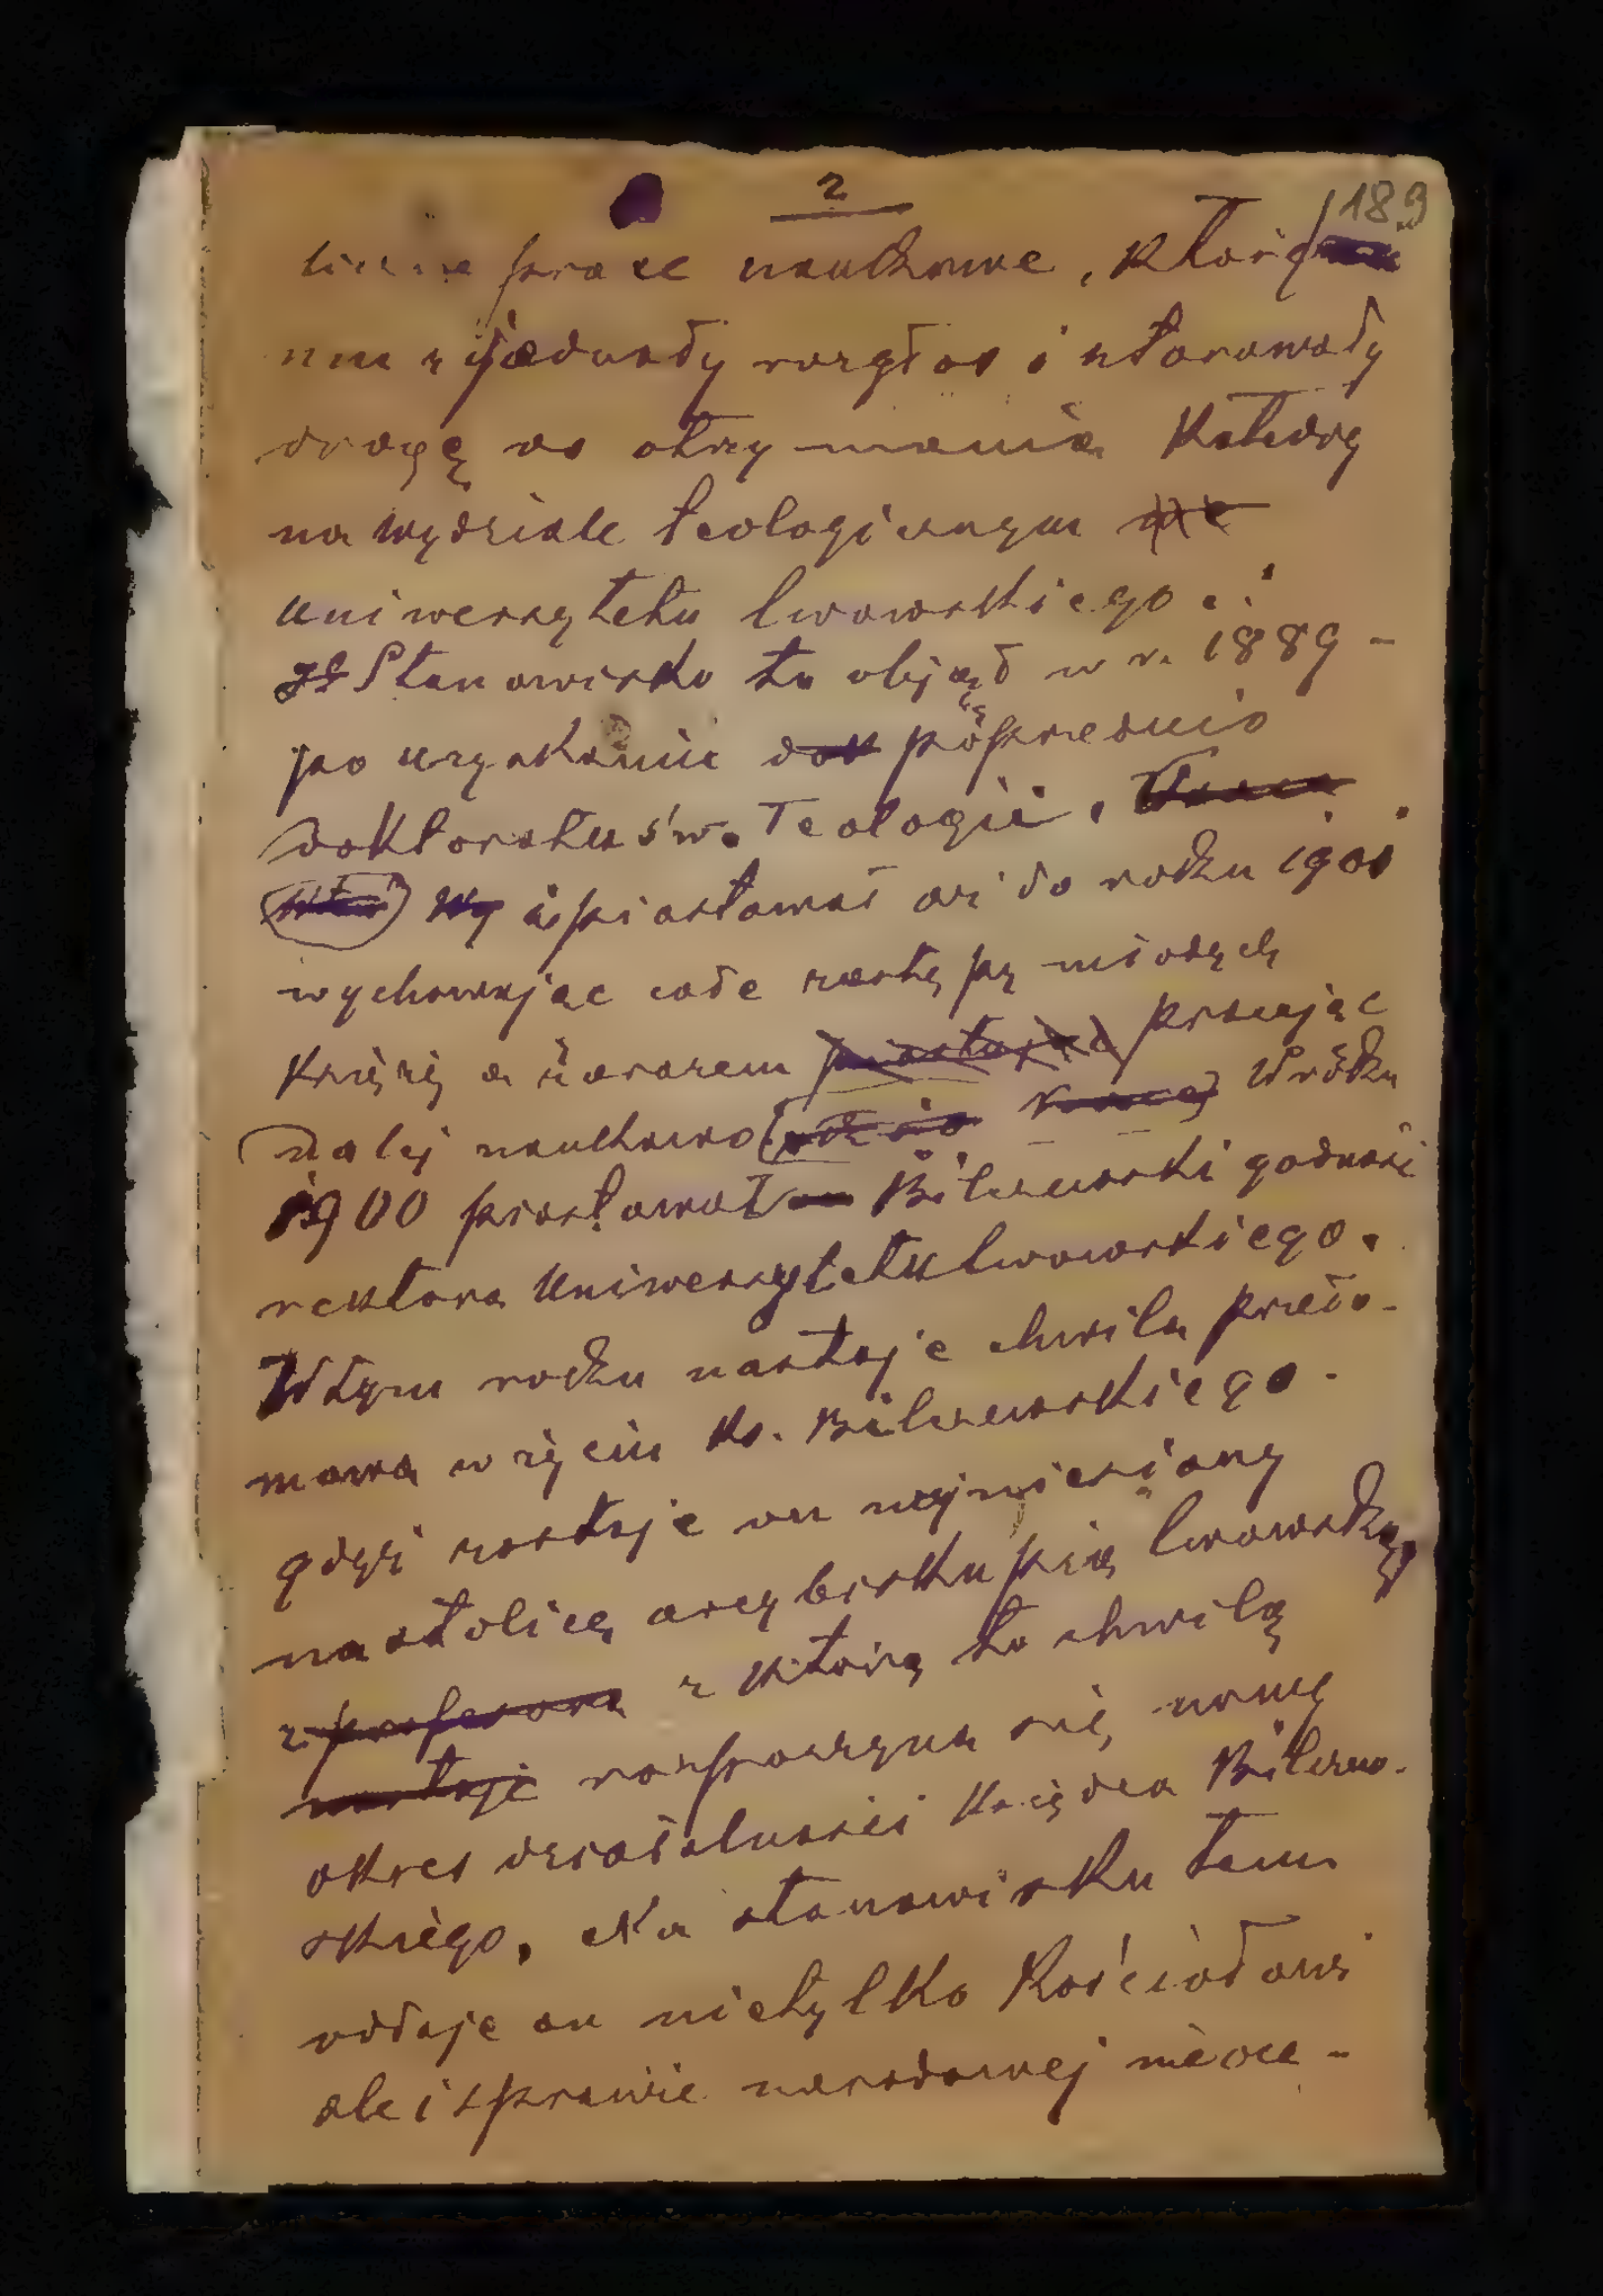 2
189
liczne prace naukowe, które
mu zjednały rozgłos i utorowały
drogę do otrzymania Katedry
na wydziale teologicznym
uniwersytetu lwowskiego.
Stanowisko to objął w r. 1889 -
po uzyskaniu dok poprzednio
doktoratu św. Teologii,
Wy i piastował aż do roku 1901
wychowując całe zastępy młodych
księży a zarazem piastując pracując
dalej naukowo W roku
1900 piastował on Bilczewski godność
rektora Uniwersytetu lwowskiego.
W tym roku nastaje chwila przeło-
mowa w życiu Ks. Bilczewskiego.
gdyż zostaje on wyniesiony
na stolicę arcybiskupią lwowską,
z profesora z którą to chwilą
nastaje rozpoczyna się nowy
okres działalności Księdza Bilczew-
skiego. Na stanowisku tem
oddaje on nietylko Kościołowi
ale i sprawie narodowej nieoce-